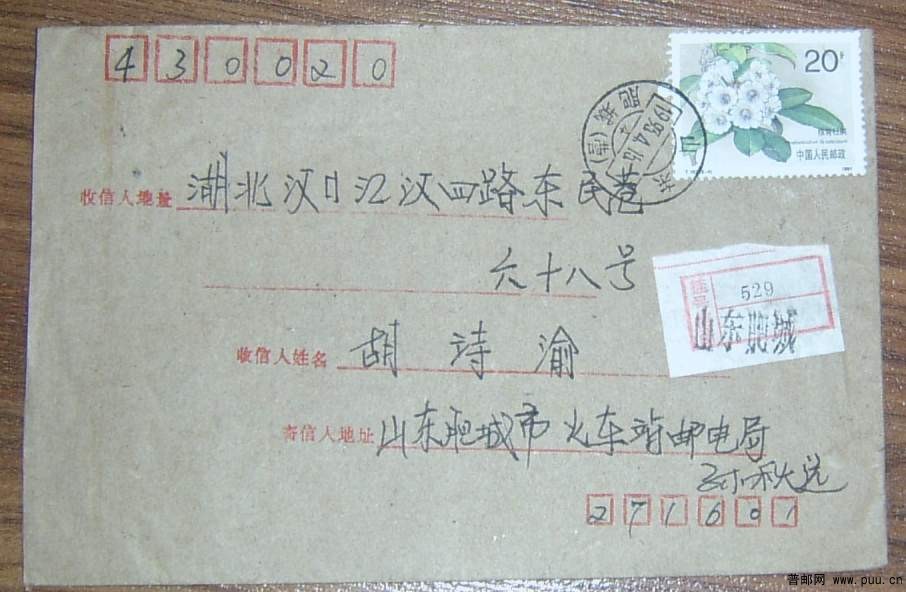 430020
20分
中国人民邮政
收信人地址 湖北汉口江汉四路东民巷
六十八号
挂号 529
山东肥城
收信人姓名 胡诗渝
寄信人地址 山东肥城市火车站邮电局
孙秋远
271601
普邮网 www.puu.cn